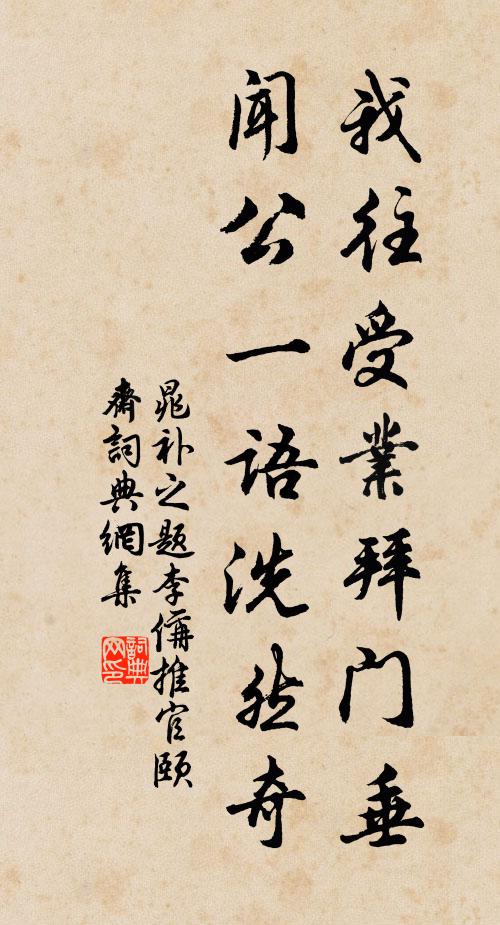 我往受業拜门垂
闻公一语洗然奇
晁补之题李偁推官颐
齋詞典網集
詞典
网印